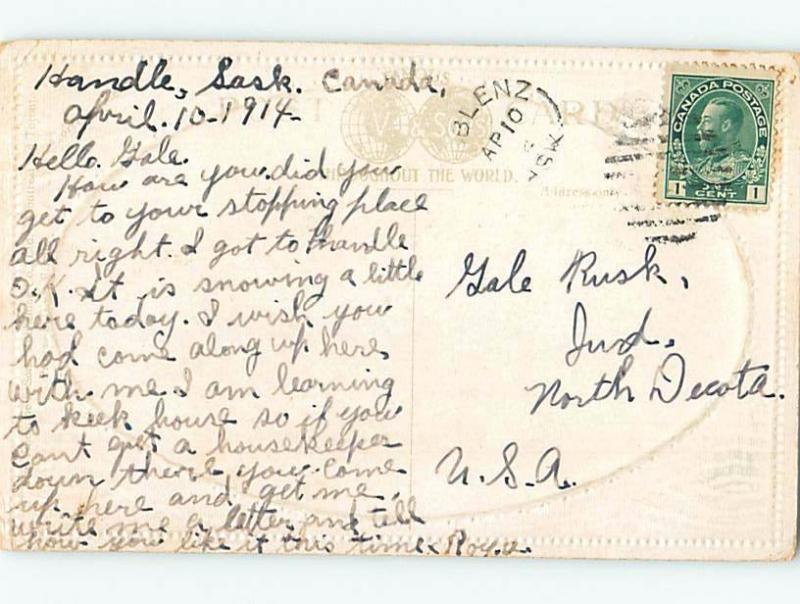 Handle, Sask. Canada,
April. 10-1914-
Hello. Gale.
How are you did you
get to your stopping place
all right. I got to Handle
O.K. It is snowing a little
here today. I wish you
had come along up here
with me I am learning
to keek house so if you
cant get a housekeeper
down there you come
up here and get me,
write me a letter and tell
how you like it this time
BLENZ
AP 10
CARD
THROUGHOUT THE WORLD.
CANADA POSTAGE
1 ONE CENT 1
Gale Rusk,
Jud,
North Decota.
U.S.A.